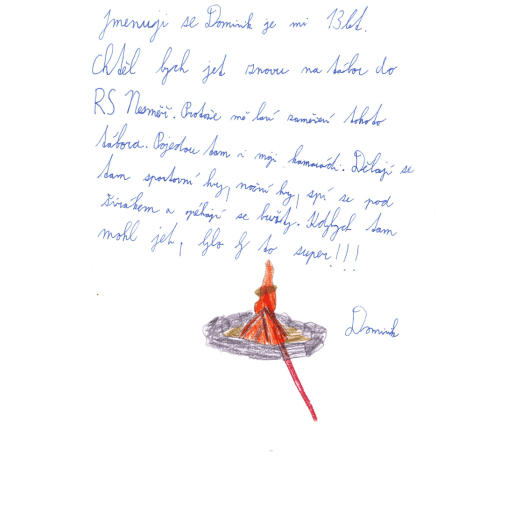 Jmenuji se Dominik je mi 13 let.
Chtěl bych jet znovu na tábor do
RS Nesměř. Protože mě baví zaměření tohoto
tábora. Pojedou tam i moji kamarádi. Dělají se
tam sportovní hry, noční hry, spí se pod
širákem a opékají se buřty. Kdybych tam
mohl jet, bylo by to super!!!
Dominik